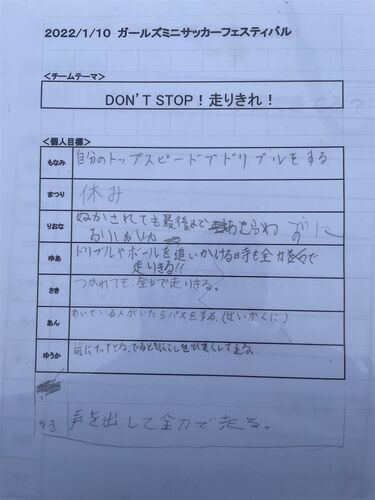 2022/1/10 ガールズミニサッカーフェスティバル
<チームテーマ>
DON'T STOP！走りきれ！
<個人目標>
もなみ 自分のトップスピードでドリブルをする
まつり 休み
りおな ぬかされても最後まであきらめずに
おいかける
ゆあ ドリブルやボールを追いかける時も全力で
走りきる!!
さき つかれても、全力で走りきる。
あん あいている人がいたらパスをする。(せいかくに)
ゆうか 前に
ゆき 声を出して全力で走る。